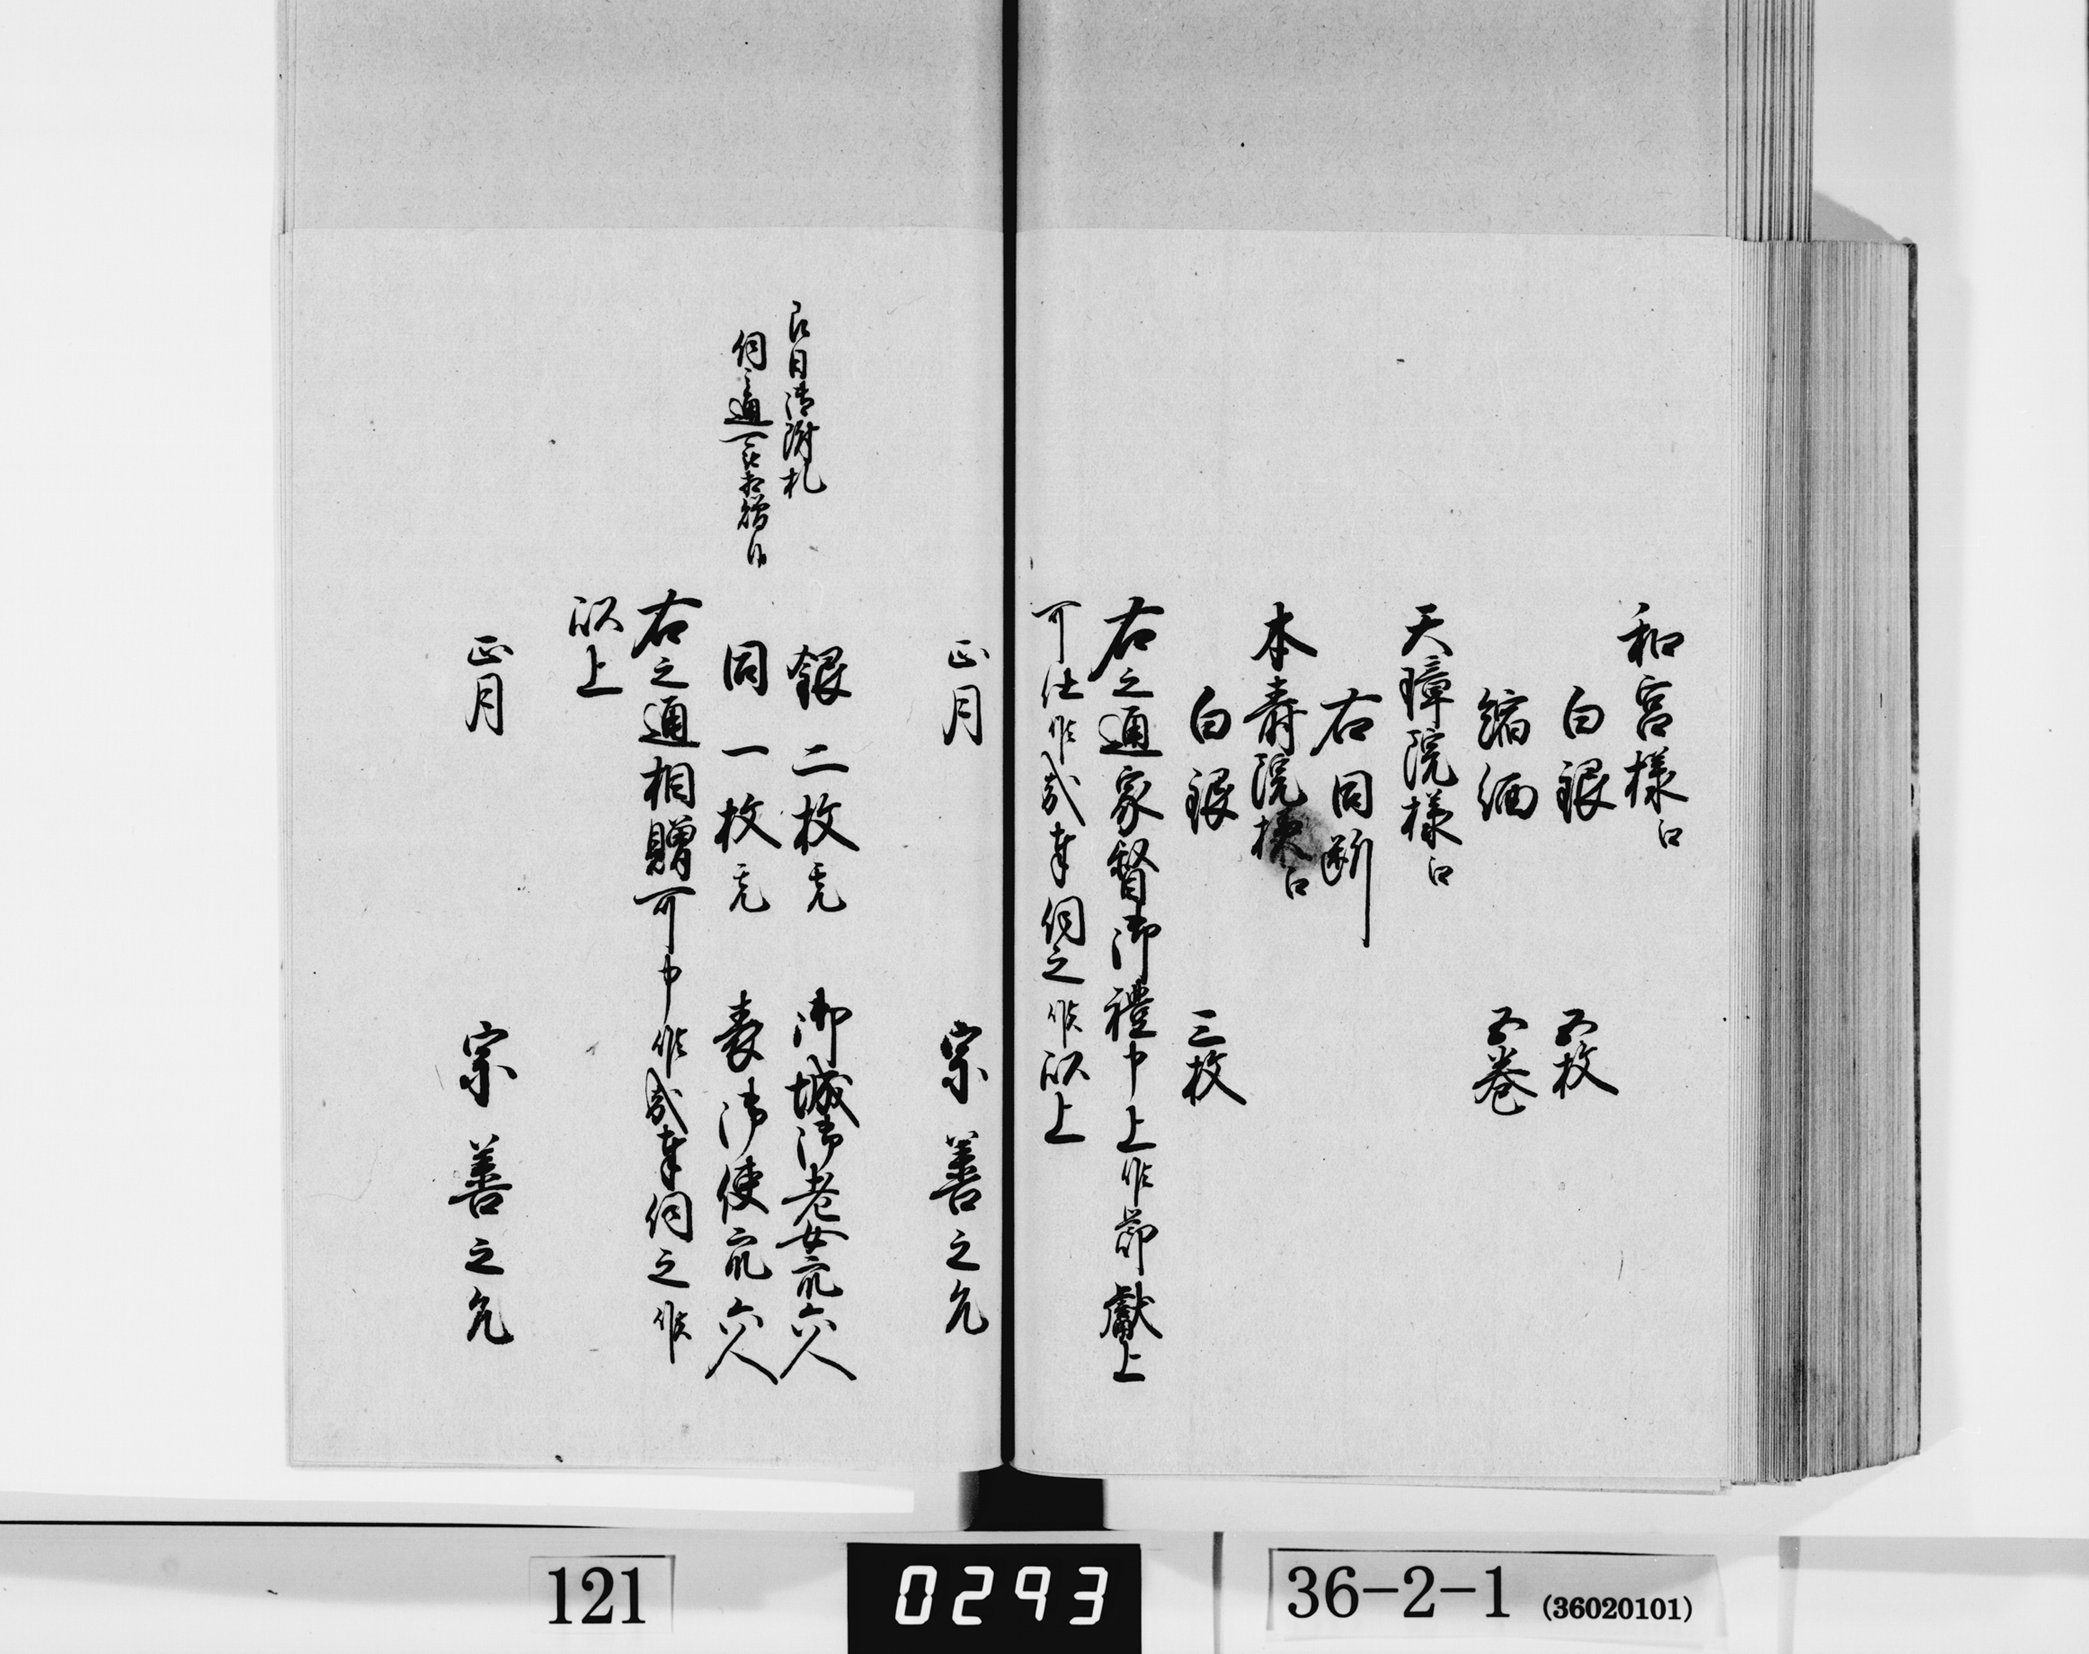 和宮様江
白銀　五枚
縮緬　五巻
天璋院様江
右同断
本寿院様江
白銀　三枚
右之通家督御禮申上候節献上
可仕候哉奉伺之候以上
正月　宗善之允
銀二枚充　御城御老女衆六人
同一枚充　表御使衆六人
右之通相贈可申候哉奉伺之候
以上
正月　宗善之允
即日御附札
伺之通可被相贈候
121
0293
36-2-1 (36020101)